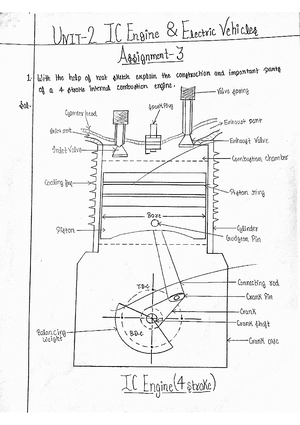 UNIT-2 IC Engine & Electric Vehicles
Assignment-3
1. With the help of neat sketch explain the construction and important parts
of a 4 stroke internal combustion engine.
Sol.
Cylinder head
Spark Plug
Valve spring
Inlet port
Exhaust port
Inlet Valve
Exhaust Valve
Combustion chamber
Cooling fin
Piston ring
Bore
Piston
Cylinder
Gudgeon Pin
Connecting rod
T.D.C
Crank Pin
Crank
Balancing
weight
B.D.C
Crank shaft
Crank case
IC Engine (4 stroke)